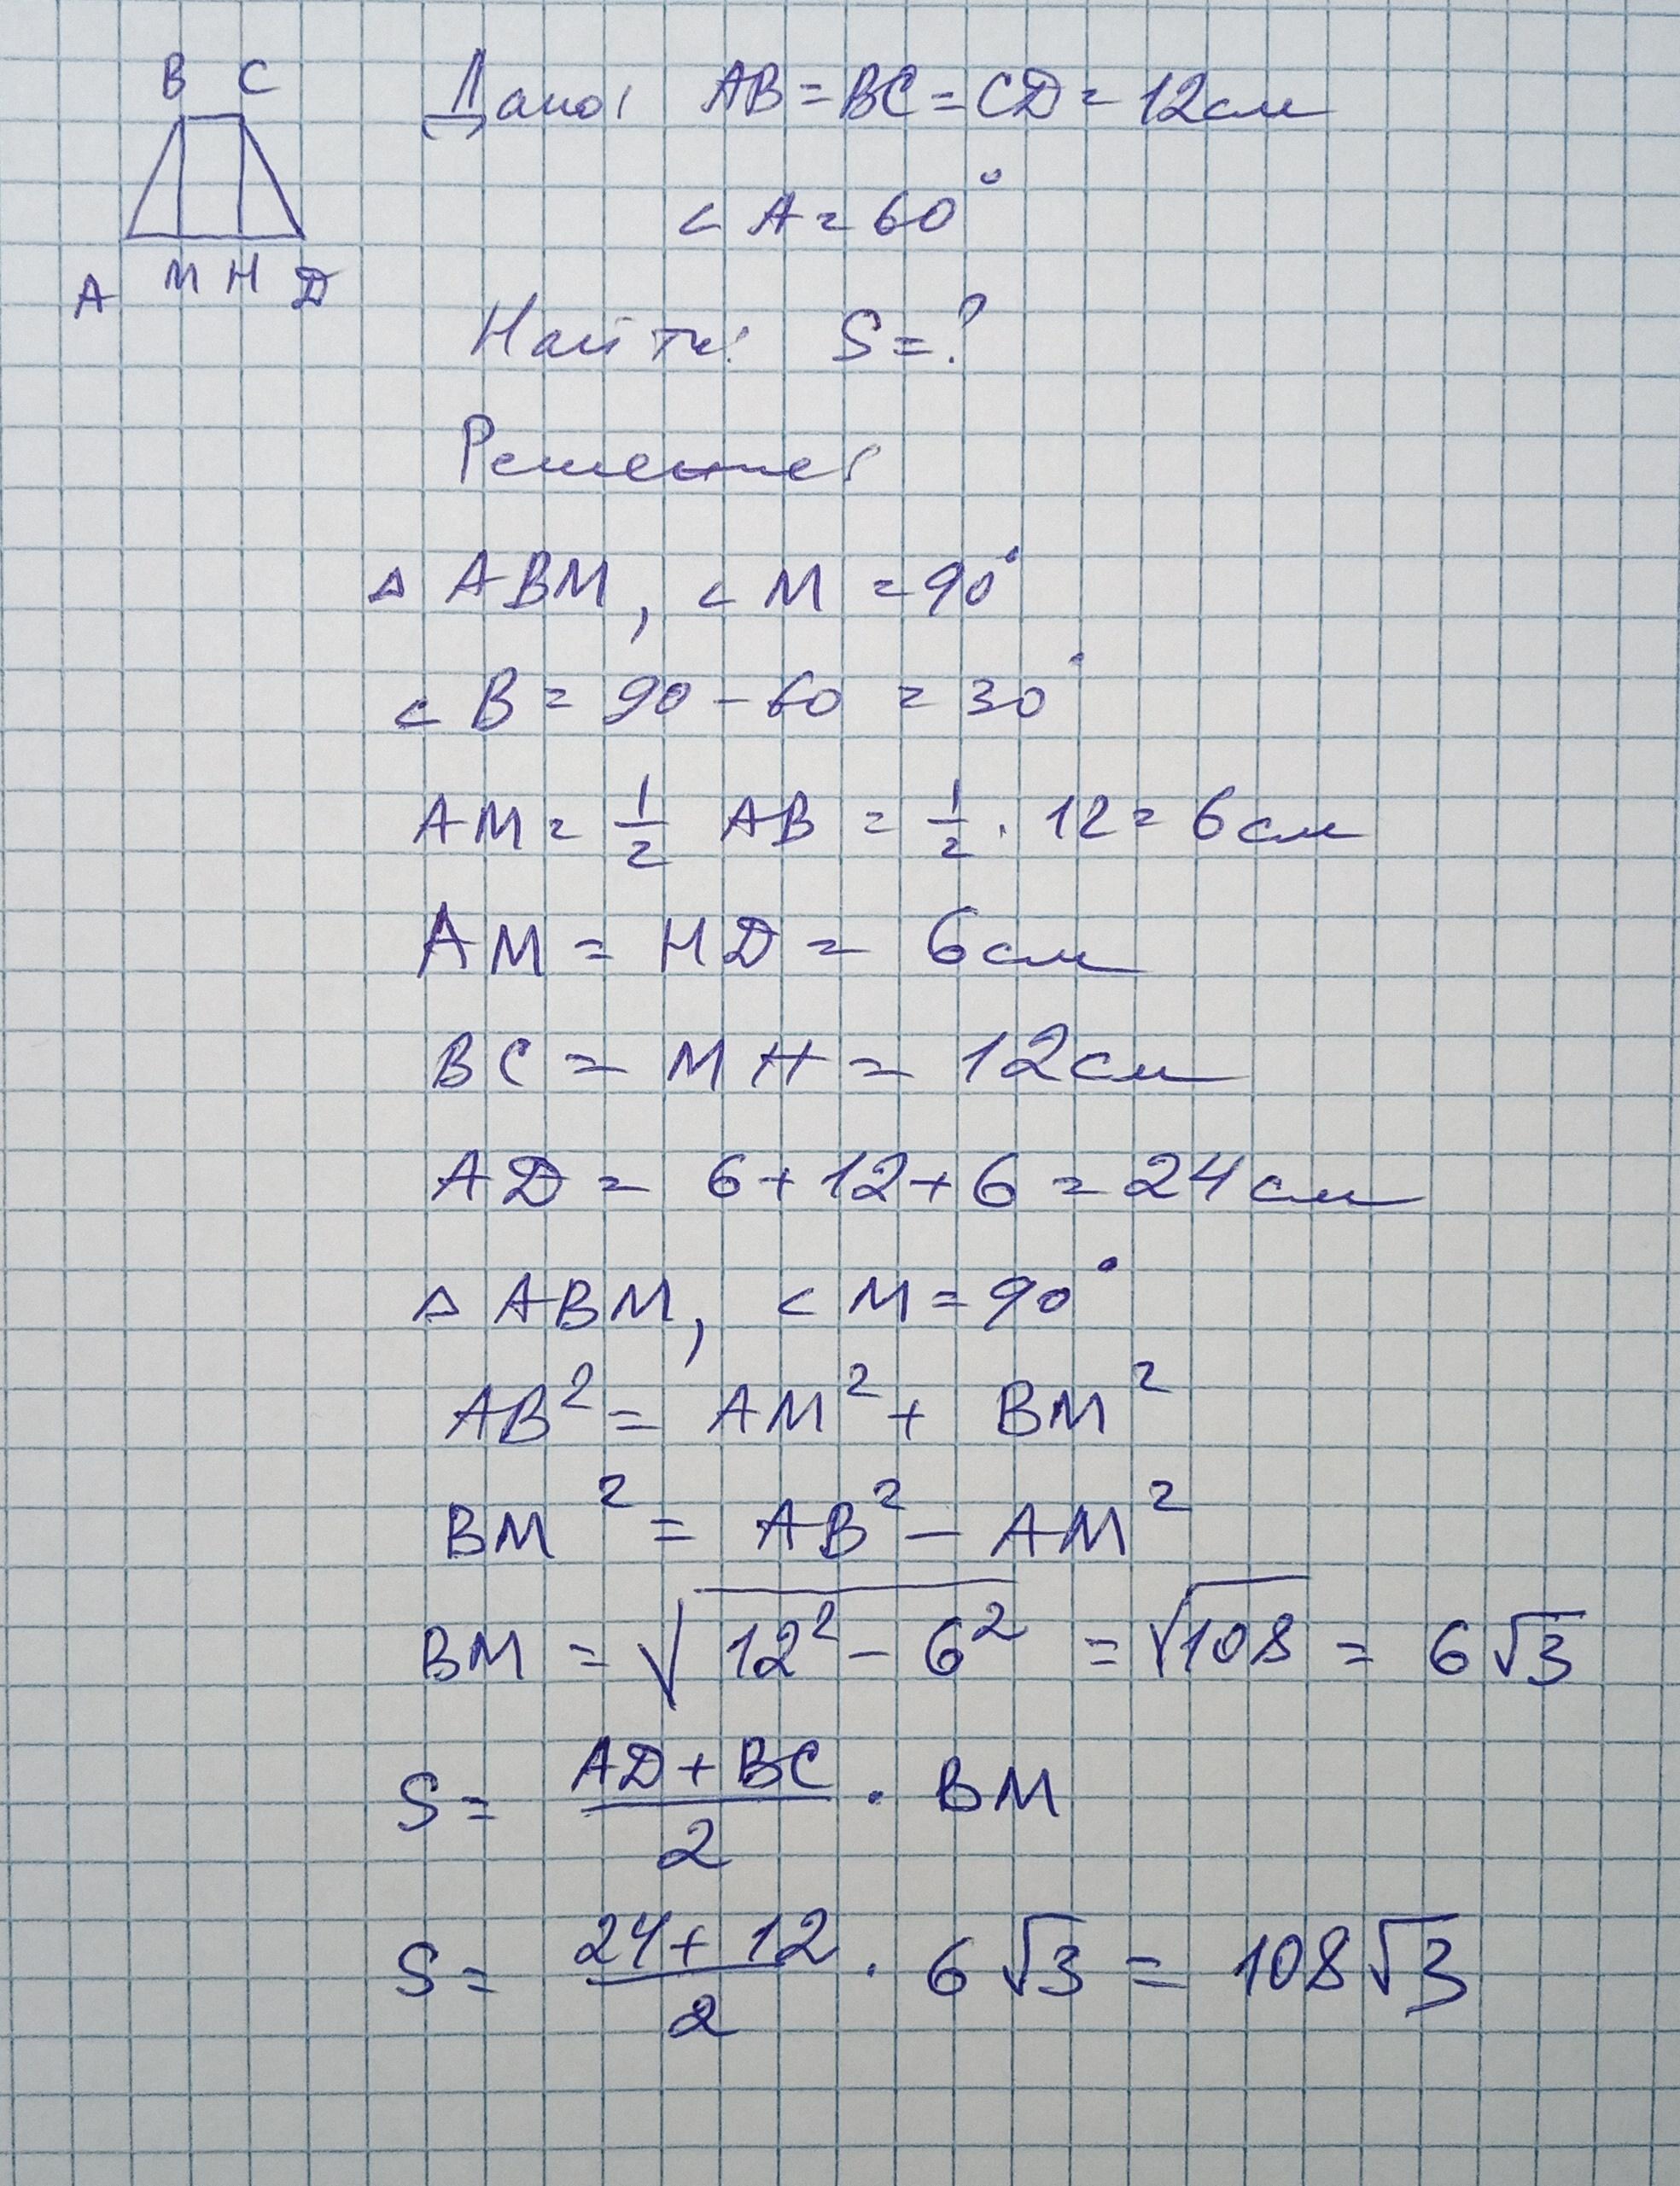 B C
A M H D
Дано: AB = BC = CD = 12см
∠ A = 60°
Найти: S = ?
Решение:
△ ABM, ∠ M = 90°
∠ B = 90 - 60 = 30°
AM = 1/2 AB = 1/2 · 12 = 6см
AM = HD = 6см
BC = MH = 12см
AD = 6 + 12 + 6 = 24см
△ ABM, ∠ M = 90°
AB² = AM² + BM²
BM² = AB² - AM²
BM = √(12² - 6²) = √108 = 6√3
S = (AD + BC)/2 · BM
S = (24 + 12)/2 · 6√3 = 108√3